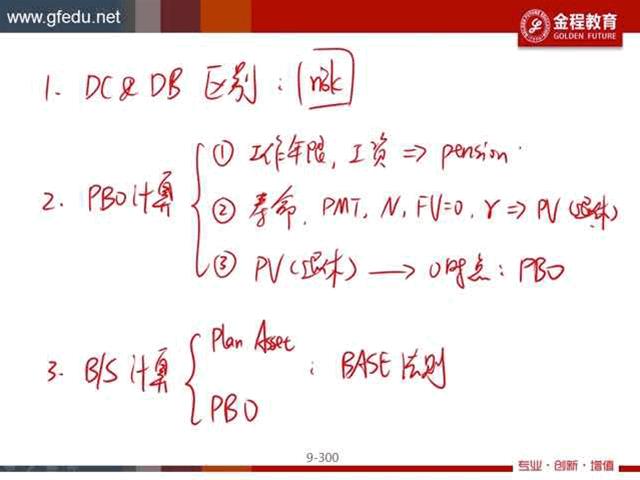 www.gfedu.net
金程教育
GOLDEN FUTURE
1. DC & DB 区别: risk
2. PBO计算
① 工作年限, 工资 ⇒ pension
② 寿命, PMT, N, FV=0, r ⇒ PV(退休)
③ PV(退休) → 0时点: PBO
3. B/S 计算
Plan Asset
PBO
: BASE法则
9-300
专业·创新·增值